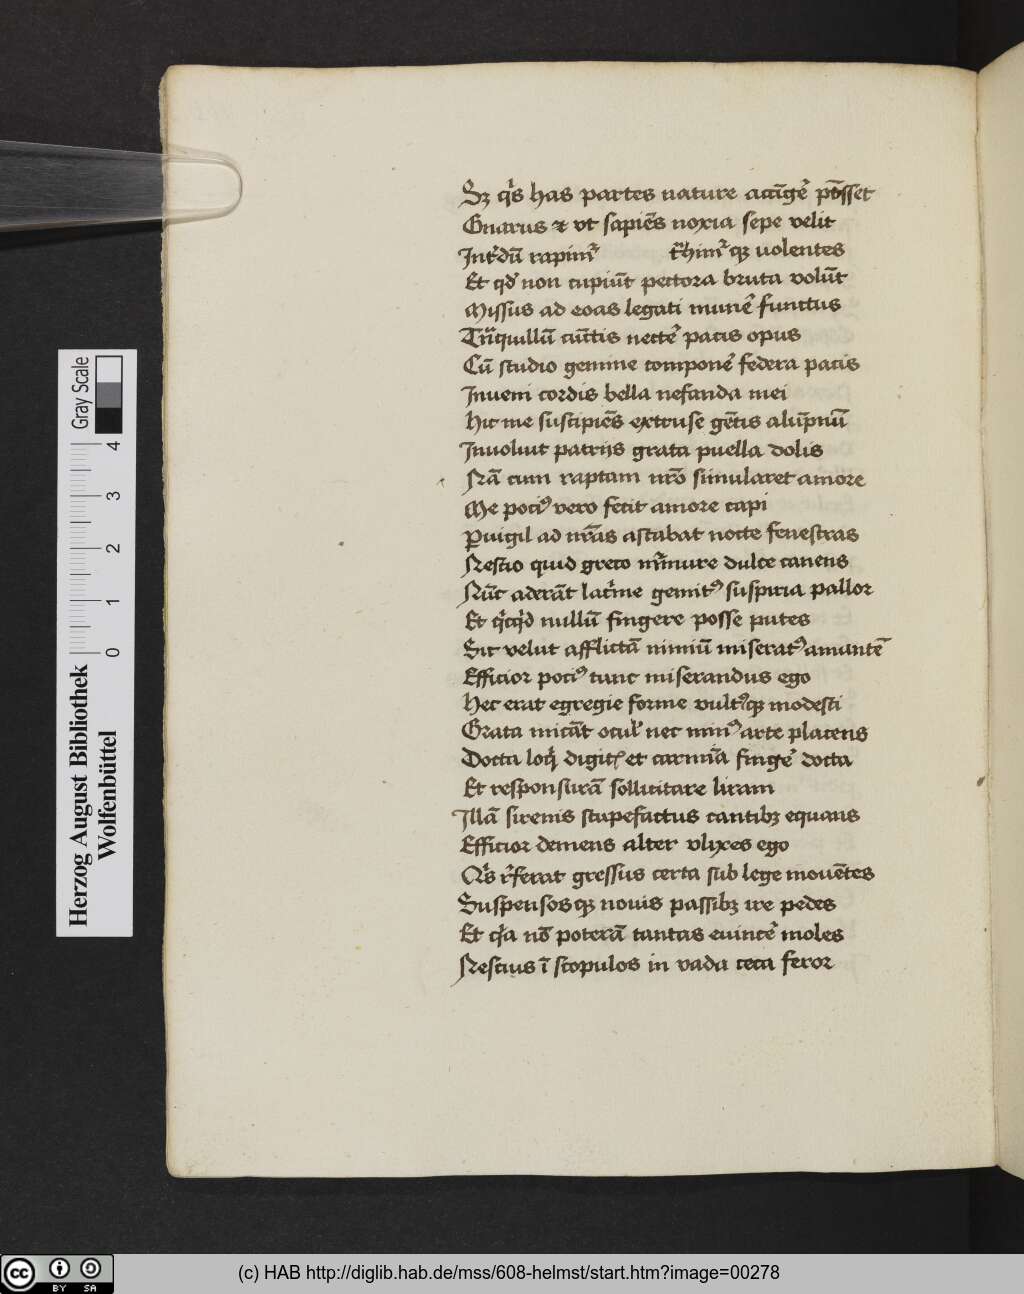 Sz q's has partes nature accīgē pōsset
Gnarus & vt sapiēs noxia sepe velit
Int'dū rapim' t'him'qz uolentes
Et qd' non cupiūt pectora bruta volūt
Missus ad eoas legati munē functus
Tnquillū cūtis nectē pacis opus
Cū studio gemine componē federa pacis
Inueni cordis bella nefanda mei
Hic me suscipiēs extruse gētis alūpnū
Inuoluit patrijs grata puella dolis
Nā cum raptam nr̄o simularet amore
Me poci' vero fecit amore capi
Puigil ad nr̄as astabat nocte fenestras
Nescio quid greco m'mure dulce canens
Nūc aderāt lac'me gemit' suspiria pallor
Et q'cq'd nullū fingere posse putes
Sic velut afflictā nimiū miserat' amantē
Efficior poci' tunc miserandus ego
Hec erat egregie forme vult'qz modesti
Grata micāt ocul' nec min' arte placens
Docta loq' digit' et carmīa fingē docta
Et responsurā sollicitare liram
Illā sirenis stupefactus cantibz equans
Efficior demens alter vlixes ego
Q's r'ferat gressus certa sub lege mouētes
Suspensosqz nouis passibz ire pedes
Et q'a nō poterā tantas euincē moles
Nescius ī scopulos in vada ceca feror
Herzog August Bibliothek
Wolfenbüttel
0 1 2 3 4
Gray Scale
cc BY SA
(c) HAB http://diglib.hab.de/mss/608-helmst/start.htm?image=00278